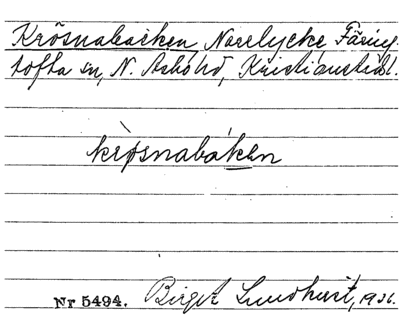 Krösnabacken, Norrlycke, Färing-
tofta sn, N. Åsbo hd, Kristianstads l.
krösnabákən
Nr 5494. Birgit Lundquist, 1926.